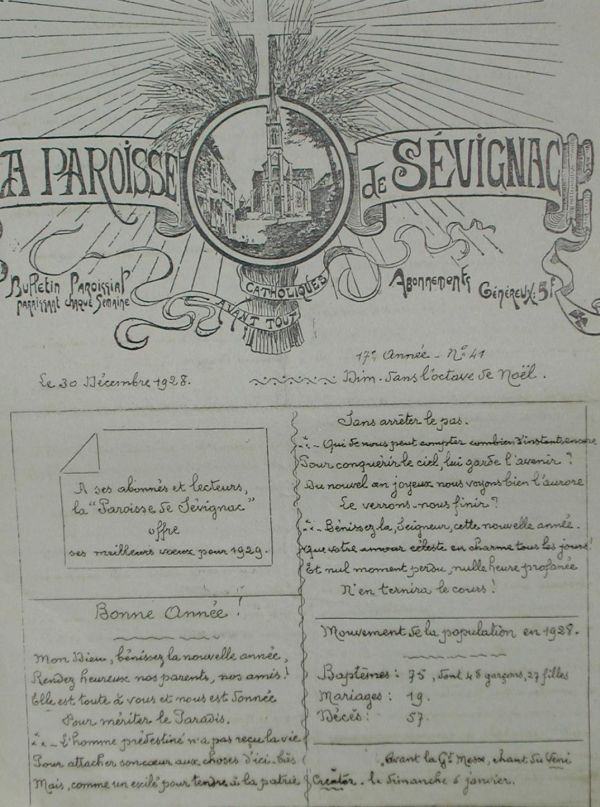 A PAROISSE de SÉVIGNAC
Bulletin Paroissial
paraissant chaque Semaine
CATHOLIQUES
AVANT TOUT
Abonnements
Généreux: 5F
17e Année - No 41
Le 30 Décembre 1928.
Dim. dans l'octave de Noël.
A ses abonnés et lecteurs,
la "Paroisse de Sévignac"
offre
ses meilleurs vœux pour 1929.
Bonne Année!
Mon Dieu, bénissez la nouvelle année,
Rendez heureux nos parents, nos amis!
Elle est toute à vous et nous est donnée
Pour mériter le Paradis.
L'homme prédestiné n'a pas reçu la vie
Pour attacher son cœur aux choses d'ici-bas
Mais, comme un exilé pour tendre à la patrie
Sans arrêter le pas.
Qui de nous peut compter combien d'instants encore
Pour conquérir le ciel, lui garde l'avenir?
Du nouvel an joyeux nous voyons bien l'aurore
Le verrons-nous finir?
Bénissez-la, Seigneur, cette nouvelle année.
Que votre amour céleste en charme tous les jours!
Et nul moment perdu, nulle heure profanée
N'en ternira le cours!
Mouvement de la population en 1928.
Baptêmes: 75, dont 48 garçons, 27 filles
Mariages: 19.
Décès: 57.
Avant la Gd Messe, chant du Veni
Creator. le dimanche 6 janvier.